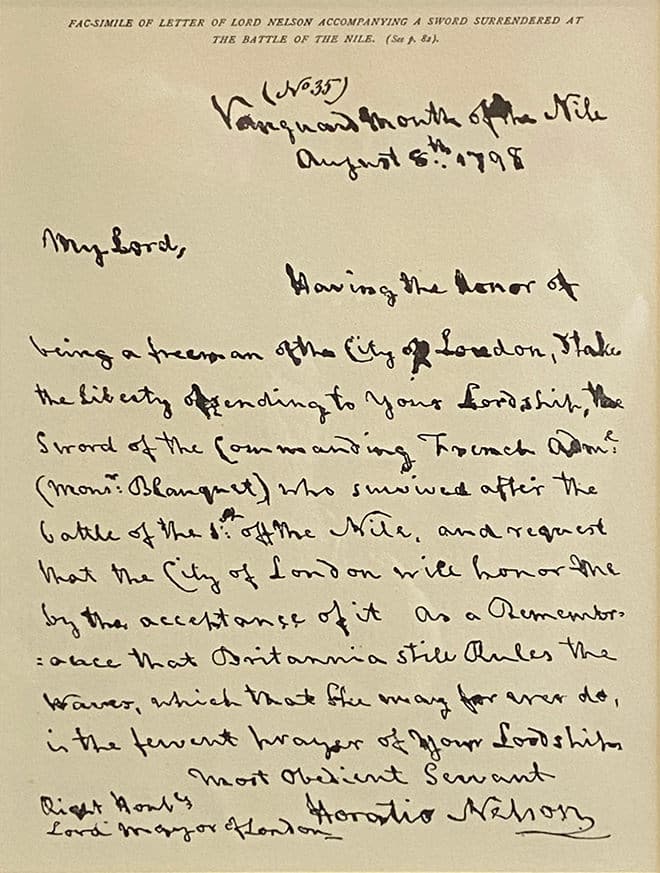 FAC-SIMILE OF LETTER OF LORD NELSON ACCOMPANYING A SWORD SURRENDERED AT
THE BATTLE OF THE NILE. (See p. 82).
(No 35)
Vanguard Mouth of the Nile
August 8th: 1798
My Lord,
Having the honor of
being a freeman of the City of London, I take
the Liberty of sending to Your Lordship, the
Sword of the Commanding French Adml:
(Monsr: Blanquet) who survived after the
battle of the 1st: off the Nile, and request
that the City of London will honor Me
by the acceptance of it as a Remembr-
:ance that Britannia still Rules the
Waves, which that She may for ever do,
is the fervent prayer of Your Lordships
Most Obedient Servant
Horatio Nelson
Right Honble
Lord Mayor of London